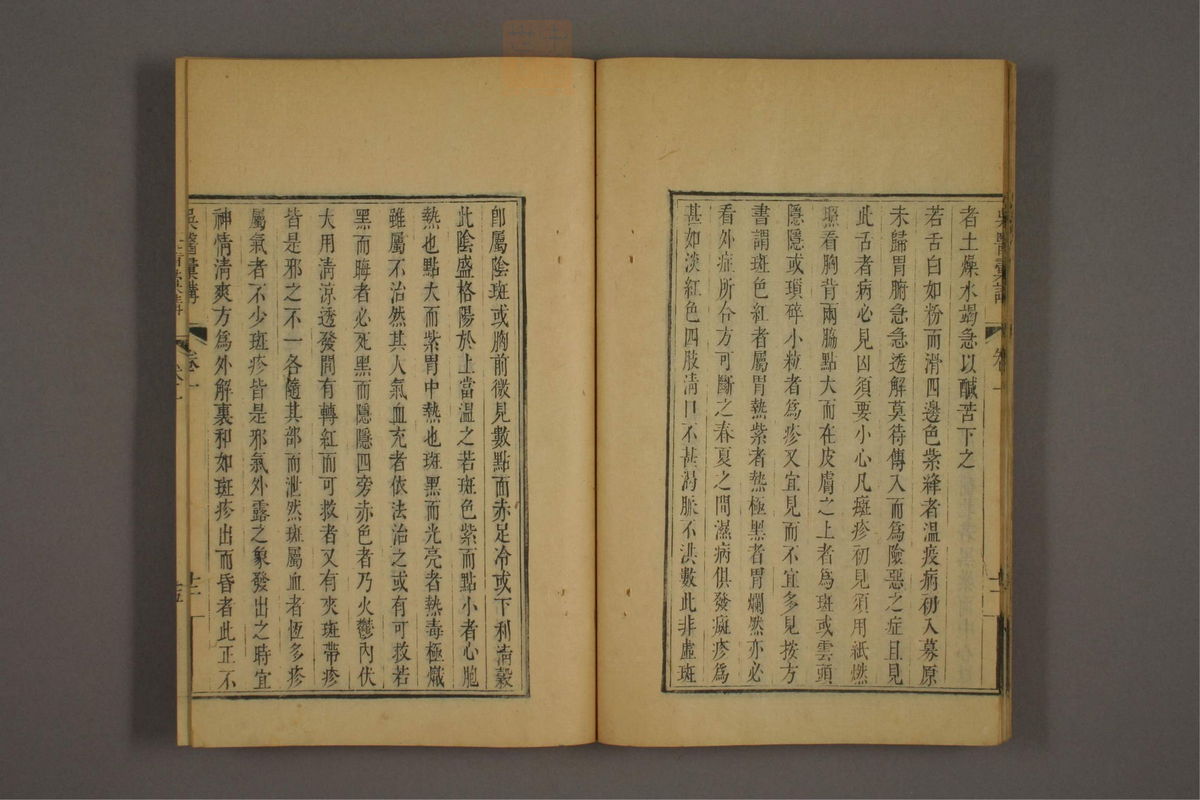 吳醫彙講
卷一
者土燥水竭急以鹹苦下之
若舌白如粉而滑四邊色紫絳者溫疫病初入募原
未歸胃腑急急透解莫待傳入而為險惡之症且見
此舌者病必見凶須要小心凡斑疹初見須用紙燃
照看胸背兩脇點大而在皮膚之上者為斑或雲頭
隱隱或瑣碎小粒者為疹又宜見而不宜多見按方
書謂斑色紅者屬胃熱紫者熱極黑者胃爛然亦必
看外症所合方可斷之春夏之間濕病俱發斑疹為
甚如淡紅色四肢清口不甚渴脈不洪數此非虛斑
卽屬陰斑或胸前微見數點面赤足冷或下利清穀
此陰盛格陽於上當溫之若斑色紫而點小者心胞
熱也點大而紫胃中熱也斑黑而光亮者熱毒極熾
雖屬不治然其人氣血充者依法治之或有可救若
黑而晦者必死黑而隱隱四旁赤色者乃火鬱內伏
大用清涼透發間有轉紅而可救者又有夾斑帶疹
皆是邪之不一各隨其部而泄然斑屬血者恆多疹
屬氣者不少斑疹皆是邪氣外露之象發出之時宜
神情清爽方為外解裏和如斑疹出而昏者此正不
吳醫彙講
卷一